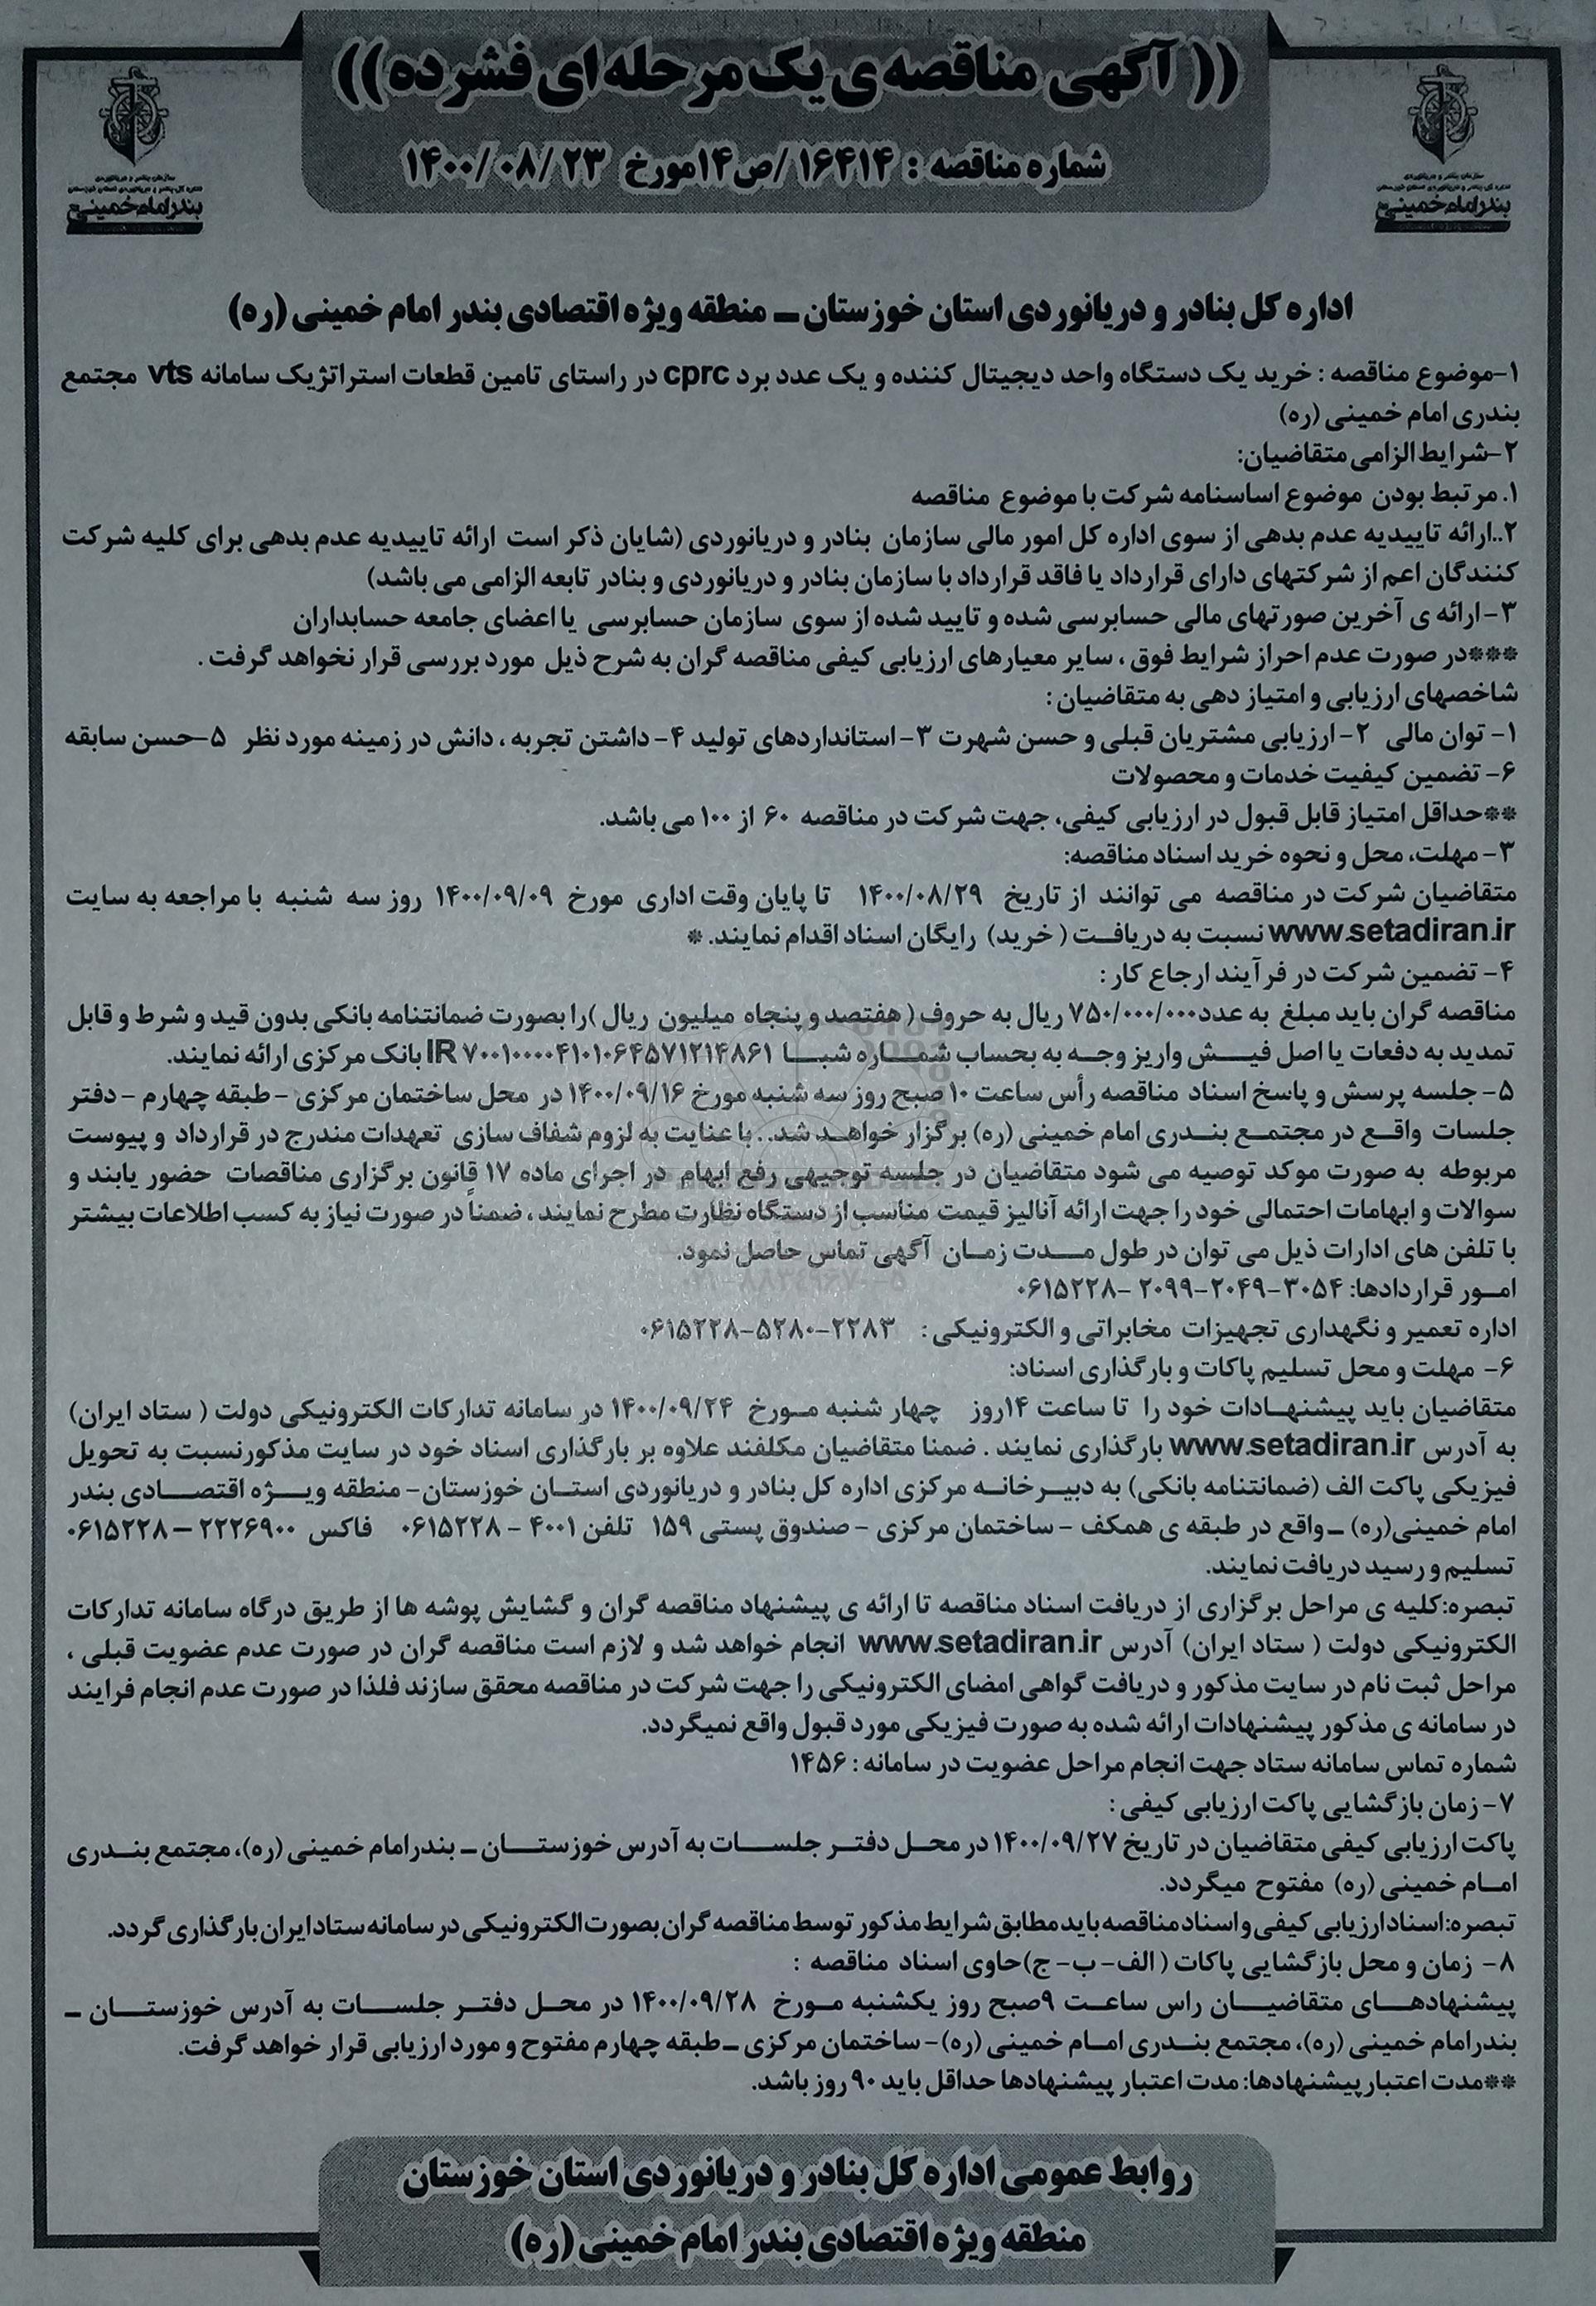 (( آگهی مناقصه ی یک مرحله ای فشرده))
شماره مناقصه : ۱۶۴۱۴ /ص۱۴مورخ ۲۳ /۱۴۰۰/۰۸
سازمان بنادر و دریانوردی
اداره کل بنادر و دریانوردی استان خوزستان
بندر امام خمینی
سازمان بنادر و دریانوردی
اداره کل بنادر و دریانوردی استان خوزستان
بندر امام خمینی
اداره کل بنادر و دریانوردی استان خوزستان – منطقه ویژه اقتصادی بندر امام خمینی (ره)
۱-موضوع مناقصه : خرید یک دستگاه واحد دیجیتال کننده و یک عدد برد cprc در راستای تامین قطعات استراتژیک سامانه vts مجتمع
بندری امام خمینی (ره)
۲-شرایط الزامی متقاضیان:
۱. مرتبط بودن موضوع اساسنامه شرکت با موضوع مناقصه
۲..ارائه تاییدیه عدم بدهی از سوی اداره کل امور مالی سازمان بنادر و دریانوردی (شایان ذکر است ارائه تاییدیه عدم بدهی برای کلیه شرکت
کنندگان اعم از شرکتهای دارای قرارداد یا فاقد قرارداد با سازمان بنادر و دریانوردی و بنادر تابعه الزامی می باشد)
۳-ارائه ی آخرین صورتهای مالی حسابرسی شده و تایید شده از سوی سازمان حسابرسی یا اعضای جامعه حسابداران
***در صورت عدم احراز شرایط فوق ، سایر معیارهای ارزیابی کیفی مناقصه گران به شرح ذیل مورد بررسی قرار نخواهد گرفت .
شاخصهای ارزیابی و امتیاز دهی به متقاضیان :
۱- توان مالی ۲- ارزیابی مشتریان قبلی و حسن شهرت ۳- استانداردهای تولید ۴- داشتن تجربه ، دانش در زمینه مورد نظر ۵-حسن سابقه
۶- تضمین کیفیت خدمات و محصولات
**حداقل امتیاز قابل قبول در ارزیابی کیفی، جهت شرکت در مناقصه ۶۰ از ۱۰۰ می باشد.
۳- مهلت، محل و نحوه خرید اسناد مناقصه:
متقاضیان شرکت در مناقصه می توانند از تاریخ ۱۴۰۰/۰۸/۲۹ تا پایان وقت اداری مورخ ۱۴۰۰/۰۹/۰۹ روز سه شنبه با مراجعه به سایت
www.setadiran.ir نسبت به دریافت ( خرید) رایگان اسناد اقدام نمایند. *
۴- تضمین شرکت در فرآیند ارجاع کار :
مناقصه گران باید مبلغ به عدد۷۵۰/۰۰۰/۰۰۰ ریال به حروف ( هفتصد و پنجاه میلیون ریال )را بصورت ضمانتنامه بانکی بدون قید و شرط و قابل
تمدید به دفعات یا اصل فیش واریز وجه به بحساب شماره شبا IR ۷۰۰۱۰۰۰۰۴۱۰۱۰۶۴۵۷۱۲۱۴۸۶۱ بانک مرکزی ارائه نمایند.
۵- جلسه پرسش و پاسخ اسناد مناقصه رأس ساعت ۱۰ صبح روز سه شنبه مورخ ۱۴۰۰/۰۹/۱۶ در محل ساختمان مرکزی - طبقه چهارم - دفتر
جلسات واقع در مجتمع بندری امام خمینی (ره) برگزار خواهد شد.. با عنایت به لزوم شفاف سازی تعهدات مندرج در قرارداد و پیوست
مربوطه به صورت موکد توصیه می شود متقاضیان در جلسه توجیهی رفع ابهام در اجرای ماده ۱۷ قانون برگزاری مناقصات حضور یابند و
سوالات و ابهامات احتمالی خود را جهت ارائه آنالیز قیمت مناسب از دستگاه نظارت مطرح نمایند ، ضمناً در صورت نیاز به کسب اطلاعات بیشتر
با تلفن های ادارات ذیل می توان در طول مدت زمان آگهی تماس حاصل نمود.
امور قراردادها: ۳۰۵۴-۲۰۴۹-۲۰۹۹ -۰۶۱۵۲۲۸
اداره تعمیر و نگهداری تجهیزات مخابراتی و الکترونیکی : ۲۲۸۳-۵۲۸۰-۰۶۱۵۲۲۸
۶- مهلت و محل تسلیم پاکات و بارگذاری اسناد:
متقاضیان باید پیشنهادات خود را تا ساعت ۱۴روز چهار شنبه مورخ ۱۴۰۰/۰۹/۲۴ در سامانه تدارکات الکترونیکی دولت ( ستاد ایران)
به آدرس www.setadiran.ir بارگذاری نمایند . ضمنا متقاضیان مکلفند علاوه بر بارگذاری اسناد خود در سایت مذکورنسبت به تحویل
فیزیکی پاکت الف (ضمانتنامه بانکی) به دبیرخانه مرکزی اداره کل بنادر و دریانوردی استان خوزستان- منطقه ویژه اقتصادی بندر
امام خمینی(ره) –واقع در طبقه ی همکف - ساختمان مرکزی - صندوق پستی ۱۵۹ تلفن ۴۰۰۱ - ۰۶۱۵۲۲۸ فاکس ۲۲۲۶۹۰۰ – ۰۶۱۵۲۲۸
تسلیم و رسید دریافت نمایند.
تبصره:کلیه ی مراحل برگزاری از دریافت اسناد مناقصه تا ارائه ی پیشنهاد مناقصه گران و گشایش پوشه ها از طریق درگاه سامانه تدارکات
الکترونیکی دولت ( ستاد ایران) آدرس www.setadiran.ir انجام خواهد شد و لازم است مناقصه گران در صورت عدم عضویت قبلی ،
مراحل ثبت نام در سایت مذکور و دریافت گواهی امضای الکترونیکی را جهت شرکت در مناقصه محقق سازند فلذا در صورت عدم انجام فرایند
در سامانه ی مذکور پیشنهادات ارائه شده به صورت فیزیکی مورد قبول واقع نمیگردد.
شماره تماس سامانه ستاد جهت انجام مراحل عضویت در سامانه : ۱۴۵۶
۷- زمان بازگشایی پاکت ارزیابی کیفی :
پاکت ارزیابی کیفی متقاضیان در تاریخ ۱۴۰۰/۰۹/۲۷ در محل دفتر جلسات به آدرس خوزستان – بندرامام خمینی (ره)، مجتمع بندری
امام خمینی (ره) مفتوح میگردد.
تبصره:اسناد ارزیابی کیفی و اسناد مناقصه باید مطابق شرایط مذکور توسط مناقصه گران بصورت الکترونیکی در سامانه ستاد ایران بارگذاری گردد.
۸- زمان و محل بازگشایی پاکات ( الف- ب- ج)حاوی اسناد مناقصه :
پیشنهادهای متقاضیان راس ساعت ۹صبح روز یکشنبه مورخ ۱۴۰۰/۰۹/۲۸ در محل دفتر جلسات به آدرس خوزستان –
بندرامام خمینی (ره)، مجتمع بندری امام خمینی (ره)- ساختمان مرکزی –طبقه چهارم مفتوح و مورد ارزیابی قرار خواهد گرفت.
**مدت اعتبار پیشنهادها: مدت اعتبار پیشنهادها حداقل باید ۹۰ روز باشد.
روابط عمومی اداره کل بنادر و دریانوردی استان خوزستان
منطقه ویژه اقتصادی بندر امام خمینی (ره)